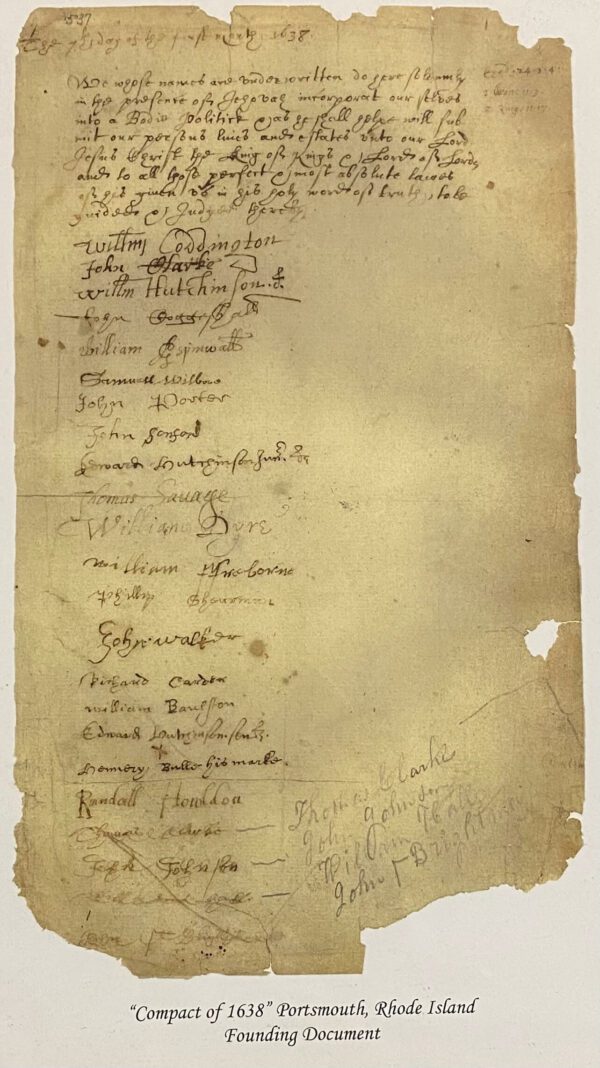 The 7th day of the first month 1638.
We whose names are underwritten do here solemnly
in the presence of Jehovah incorporat our selves
into a Bodie Politick & as he shall helpe will sub
mit our persons lives and estates unto our Lord
Jesus Christ the King of Kings & Lord of Lords
and to all those perfect & most absolute lawes
of his given us in his holy word of truth, to be
guided & Judged thereby.
Exod. 24. 3. 4
2 Kings 11. 17
Willm Coddington
John Clarke
Willm Hutchinson
John Coggeshall
William
Samuell Wilbore
John Porter
John Sanford
Edward Hutchinson Junr
Thomas Savage
William Dyre
William Freborne
Phillip Shearman
John Walker
Richard Carder
William Baulston
Edward Hutchinson senr.
Henery Bulle his marke.
X
Randall Howldon
Thomas Clarke
John Johnson
William Hall
John
Thomas Clarke
John Johnson
William Hall
John Brightman
“Compact of 1638” Portsmouth, Rhode Island
Founding Document